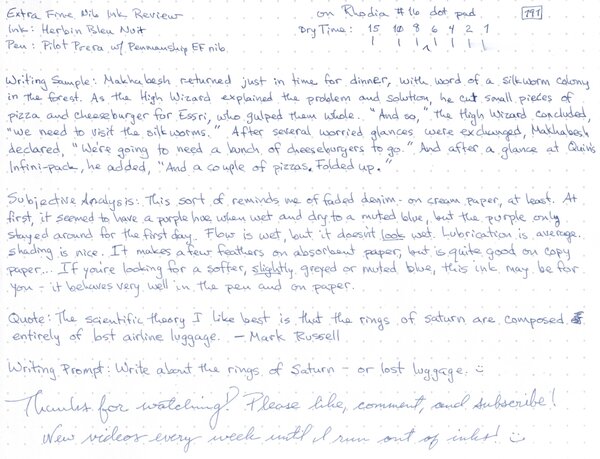 Extra Fine Nib Ink Review on Rhodia #16 dot pad 191
Ink: Herbin Bleu Nuit Dry Time: 15 10 8 6 4 2 1
Pen: Pilot Prera w/ Penmanship EF nib
Writing Sample: Makhabesh returned just in time for dinner, with word of a silkworm colony
in the forest. As the High Wizard explained the problem and solution, he cut small pieces of
pizza and cheeseburger for Essri, who gulped them whole. "And so," the High Wizard concluded,
"we need to visit the silkworms." After several worried glances were exchanged, Makhabesh
declared, "We're going to need a bunch of cheeseburgers to go." And after a glance at Quin's
Infini-pack, he added, "And a couple of pizzas. Folded up."
Subjective Analysis: This sort of reminds me of faded denim - on cream paper, at least. At
first, it seemed to have a purple hue when wet and dry to a muted blue, but the purple only
stayed around for the first day. Flow is wet, but it doesn't look wet. Lubrication is average.
shading is nice. It makes a few feathers on absorbent paper, but is quite good on copy
paper... If you're looking for a softer, slightly greyed or muted blue, this ink may be for
you - it behaves very well in the pen and on paper.
Quote: The scientific theory I like best is that the rings of saturn are composed
entirely of lost airline luggage. — Mark Russell
Writing Prompt: Write about the rings of Saturn - or lost luggage. :)
Thanks for watching! Please like, comment, and subscribe!
New videos every week until I run out of inks! :)